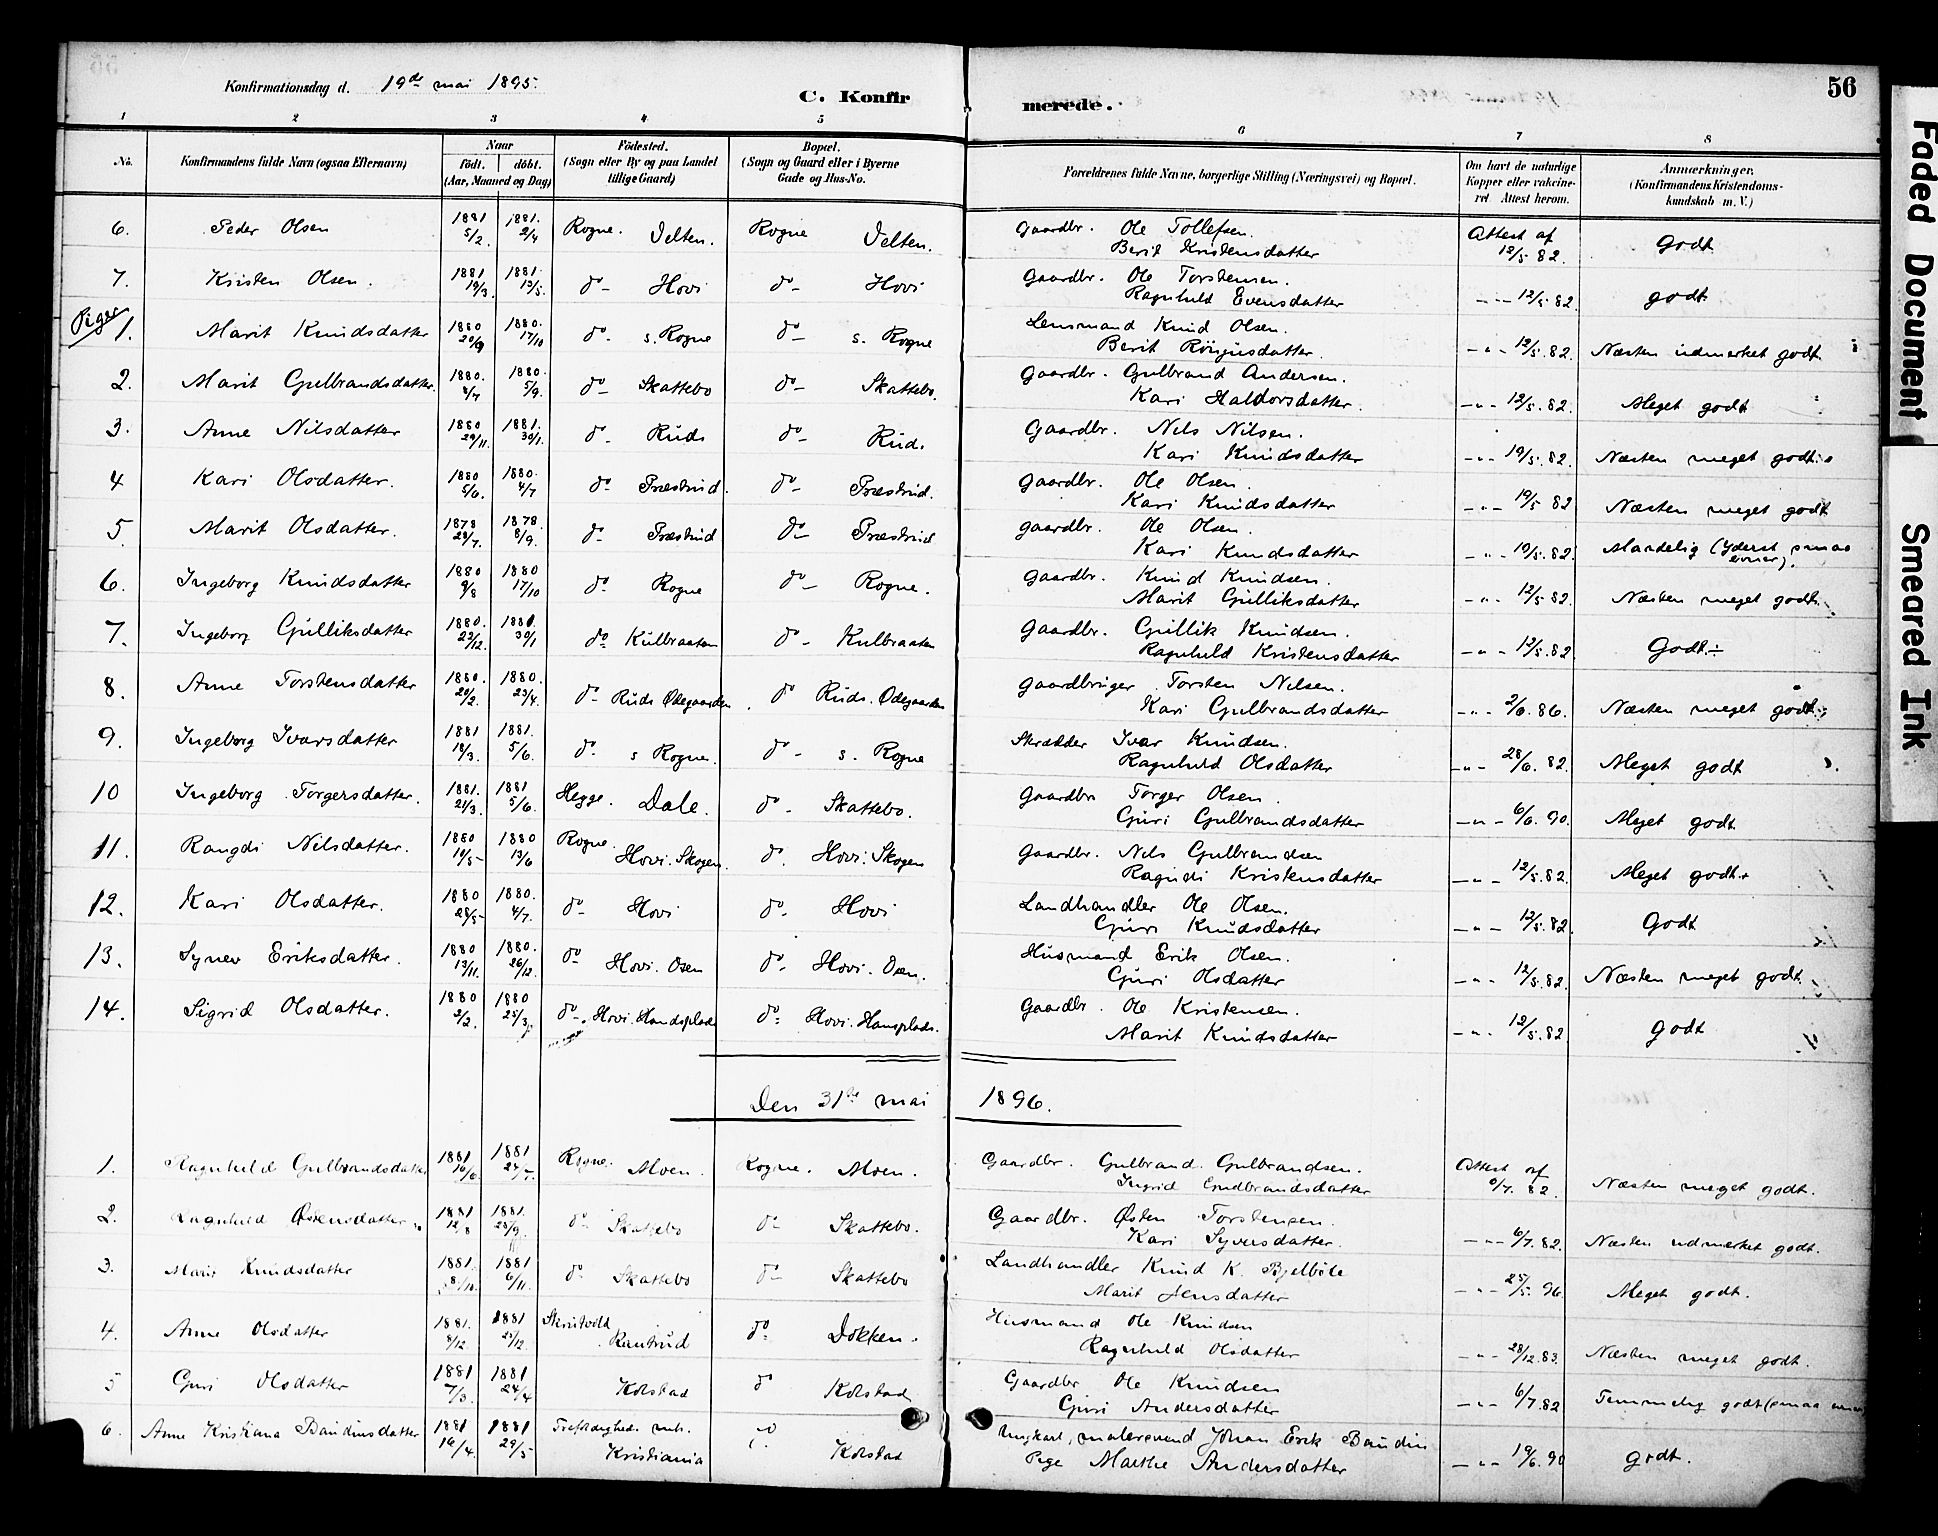 56
Konfirmationsdag d. 19de mai 1895.
C. Konfirmerede.
1 2 3 4 5 6 7 8
No. Konfirmandens fulde Navn (ogsaa Efternavn) Naar födt. döbt. (Aar, Maaned og Dag) Födested. (Sogn eller By og paa Landet tillige Gaard) Bopæl. (Sogn og Gaard eller i Byerne Gade og Hus-No. Forældrenes fulde Navne, borgerlige Stilling (Næringsvei) og Bopæl. Om havt de naturlige Kopper eller vakcineret. Attest herom. Anmærkninger. (Konfirmandens Kristendomskundskab m. V.)
6. Peder Olsen 1881 5/2. 1881. 2/4 Rogne. Velten. Rogne Velten. Gaardbr. Ole Tollefsen. Attest af
Berit Kristensdatter 12/5 82. Godt
7. Kristen Olsen. 1881 19/3. 1881. 13/5. do Hovi do Hovi Gaardbr. Ole Torstensen.
Ragnhild Evensdatter - " - 12/5. 82. godt
Piger
1. Marit Knudsdatter 1880 20/9 1880. 17/10 do s. Rogne do s. Rogne Lensmand Knud Olsen.
Berit datter. - " - 12/5. 82. Næsten udmerket godt
2. Marit Gulbrandsdatter. 1880. 4/7 1880. 5/9. do Skattebo do Skattebo. Gaardbr. Gulbrand Andersen.
Kari Haldorsdatter. - " - 12/5. 82. Meget godt
3. Anne Nilsdatter 1880 29/11. 1881. 30/1. do Rud. do Rud. Gaardbr. Nils Nilsen.
Kari Knudsdatter - " - 19/5. 82. Næsten meget godt.
4 Kari Olsdatter. 1880 5/6. 1880. 4/7 do Præstrud. do Præstrud. Gaardbr. Ole Olsen.
Kari Knudsdatter - " - 19/5 82 Næsten meget godt
5. Marit Olsdatter. 1878 28/7. 1878. 8/9. do Præstrud do Præstrud gaardbr. Ole Olsen.
Kari Knudsdatter - " - 19/5. 82. Maadelig (yderst smaa evner).
6. Ingeborg Knudsdatter 1880 9/8 1880 17/10 do Rogne do Rogne. Gaardbr. Knud Knudsen.
Marit Gulliksdatter - " - 12/5 82. Næsten meget godt.
7. Ingeborg Gulliksdatter 1880. 22/12. 1881. 30/1 do Kulbraaten do Kulbraaten Gaardbr. Gullik Knudsen.
Ragnhild Kristensdatter - " - 12/5. 82 Godt.÷
8. Anne Torstensdatter 1880. 20/2. 1880. 23/4. do Ruds Ødegaarden do Ruds. Ødegaarden Gaardbruger Torsten Nilsen.
Kari Gulbrandsdatter - " - 2/6. 86. Næsten meget godt
9. Ingeborg Ivarsdatter 1881 18/3. 1881. 5/6. do s Rogne. do s. Rogne Skrædder Ivar Knudsen.
Ragnhild Olsdatter - " - 28/6. 82. Meget godt
10 Ingeborg Torgersdatter. 1881. 21/3. 1881 5/6. Hegge. Dale. do Skattebo. Gaardbr Torger Olsen.
Guri Gulbrandsdatter - " - 6/6. 90. Meget godt
11. Rangdi Nilsdatter. 1880 14/5 1880 13/6 Rogne. Hovi. Skogen. do. Hovi. Skogen Gaardbr. Nils Gulbrandsen
Ragndi Kristensdatter - " - 12/5. 82. Meget godt.
12. Kari Olsdatter. 1880 28/5 1880. 4/7. do Hovi do. Hovi Landhandler Ole Olsen.
Guri Knudsdatter - " - 12/5. 82. Godt
13. Synev Eriksdatter. 1880 13/11. 1880. 26/12. do Hovi. Osen do. Hovi. Osen. Husmand Erik Olsen.
Guri Olsdatter - " - 12/5. 82. Næsten meget godt.
14. Sigrid Olsdatter. 1880 2/2. 1880 25/3 do Hovi. Hansplads do. Hovi. Hansplads. Gaardbr. Ole Kristensen.
Marit Knudsdatter - " - 12/5. 82 godt
Den 31te mai 1896.
1. Ragnhild Gulbrandsdatter 1881 16/6. 1881 24/7. Rogne. Moen. Rogne. Moen. Gaardbr. Gulbrand Gulbrandsen. Attest af
Ingrid Gudbrandsdatter 6/7. 82. Næsten meget godt.
2. Ragnhild Østensdatter 1881 12/8 1881. 25/9. do Skattebo do Skattebo. Gaardbr. Østen Torstensen.
Kari Syversdatter. - " - 6/7. 82. Næsten udmærket godt.
3. Marit Knudsdatter 1881. 1881 6/11. do Skattebo do Skattebo Landhandler Knud K. Bjelbøle
Marit Jensdatter - " - 25/5. 96. Meget godt.
4. Anne Olsdatter 1881. 8/12 1881 25/12. Skrutvold Rautrud do. Dokken. Husmand Ole Knudsen
Ragnhild Olsdatter - " - 28/12. 83. Næsten meget godt.
5 Guri Olsdatter 1881 7/3. 1881 24/4 Kolstad do Kolstad Gaardbr Ole Knudsen
Guri Andersdatter - " - 6/7. 82 Temmelig godt (smaa evner)
6. Anne Kristiana Baudinsdatter 1881 16/4. 1881 29/5 Kristiania do. Kolstad Ungkarl, malersvend Johan Erik Baudin
Pige Marthe Andersdatter - " - 19/6. 90 godt.
Faded Document
Smeared Ink